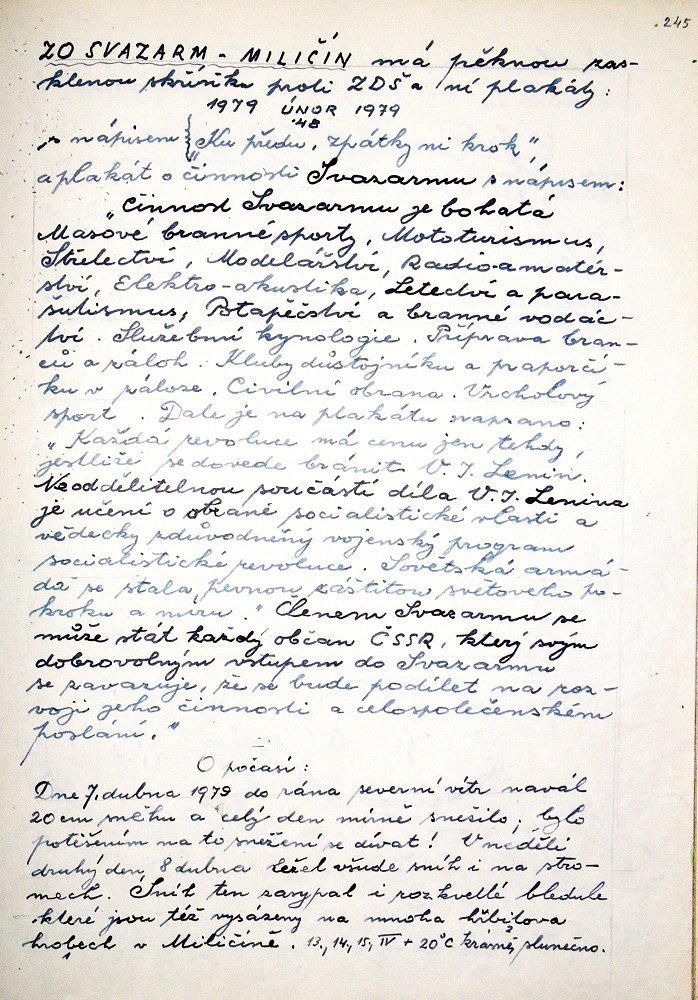 245
ZO SVAZARM - MILIČÍN má pěknou zas-
klenou skříňku proti ZDŠ a ní plakáty:
1979 ÚNOR 1979
'48
s nápisem „Ku předu, zpátky ni krok"
a plakát o činnosti Svazarmu s nápisem:
„Činnost Svazarmu je bohatá
Masové branné sporty, Mototurismus,
Střelectví, Modelářství, Radioamatér-
ství, Elektro-akustika, Letectví a para-
šutismus, Potapěčství a branné vodác-
tví. Služební kynologie. Příprava bran-
ců a záloh. Kluby důstojníku a praporčí-
ku v záloze. Civilní obrana. Vrcholový
sport. Dale je na plakátu napsano:
„Každá revoluce má cenu jen tehdy,
jestliže se dovede bránit V. I. Lenin.
Neoddělitelnou součástí díla V. I. Lenina
je učení o obraně socialistické vlasti a
vědecky zdůvodněný vojenský program
socialistické revoluce. Sovětská armá-
da se stala pevnou záštitou světového po-
kroku a míru." Členem Svazarmu se
může stát každý občan ČSSR, který svým
dobrovolným vstupem do Svazarmu
se zavazuje, že se bude podílet na roz-
voji jeho činnosti a celospolečenském
poslání."
O počasí:
Dne 7. dubna 1979 do rána severní vítr navál
20 cm sněhu a celý den mírně snežilo; bylo
potěšením na to snežení se dívat! V neděli
druhý den, 8 dubna ležel všude sníh i na stro-
mech. Sníh ten zasypal i rozkvetlé bledule
které jsou též vysázeny na mnoha hřbitova
hrobech v Miličíně. 13., 14., 15., IV + 20°C krásně, slunečno.